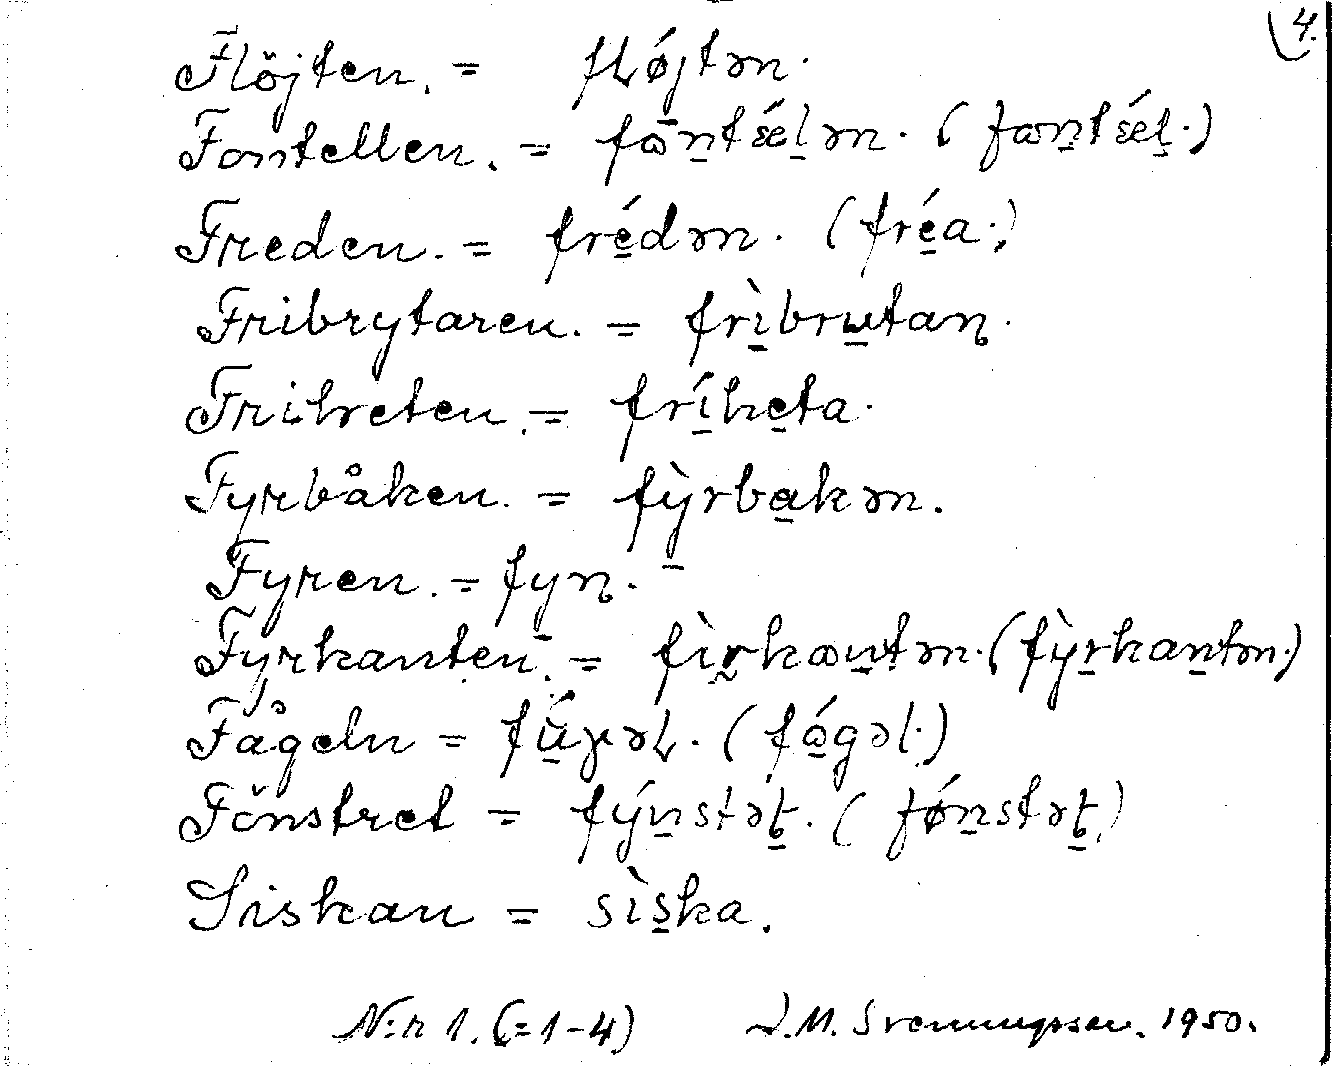 4.
Flöjten. = flǿjtən.
Fontellen. = fɷntǽlən. (fɷntǽl.)
Freden. = frédən. (fréa.)
Fribrytaren. = frìbrʉtaɳ.
Friheten. = fríheta.
Fyrbåken. = fỳrbakən.
Fyren. = fyɳ.
Fyrkanten. = fìrkantən. (fỳrkantən.)
Fågeln = (fɷ́gəl.)
Fönstret = fýnstət. (fǿnstət.)
Siskan = sìska.
N:r 1. (=1-4) J.M. Svenningsson. 1950.